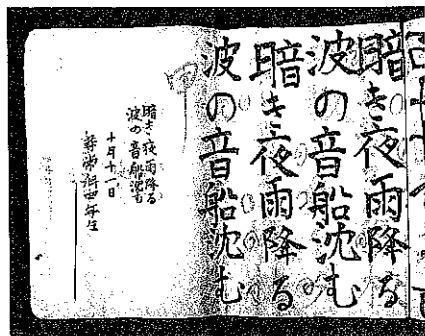 暗き夜雨降る
波の音船沈む
暗き夜雨降る
波の音船沈む
暗き夜雨降る
波の音船沈む
十月十一日